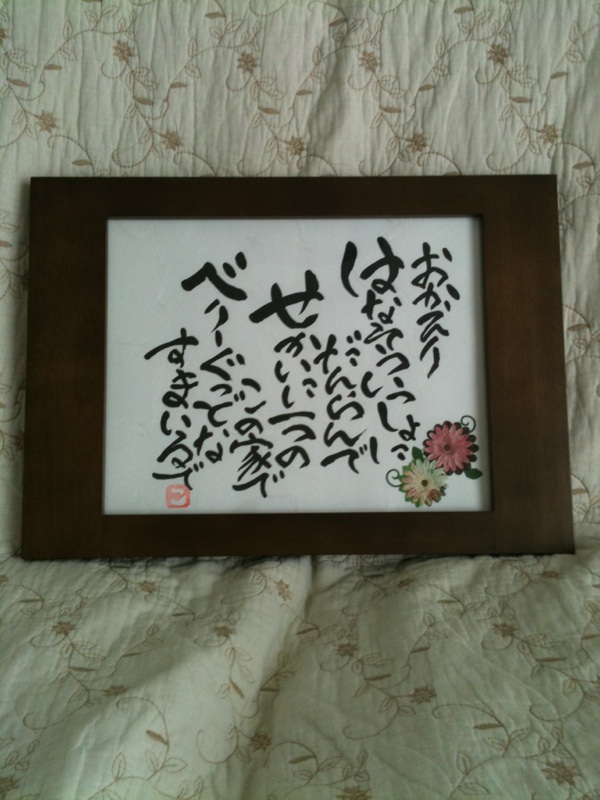 おかえり
はなそういっしょに
だんらんで
せかいに一つの
この家で
べりーぐっどな
すまいるで